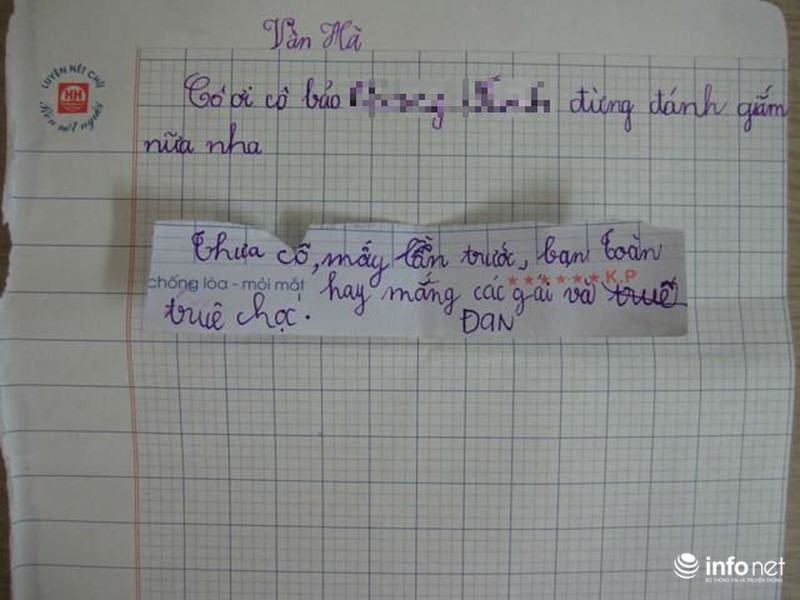 Vân Hà
LUYỆN NÉT CHỮ
HH
Rèn nết người
Cô ơi cô bảo đừng đánh giấm
nữa nha
Thưa cô, mấy lần trước, bạn Toàn
chống lóa - mỏi mắt hay mắng các gái và truê
K.P
truê chọc.
ĐAN
infonet
BỘ THÔNG TIN VÀ TRUYỀN THÔNG